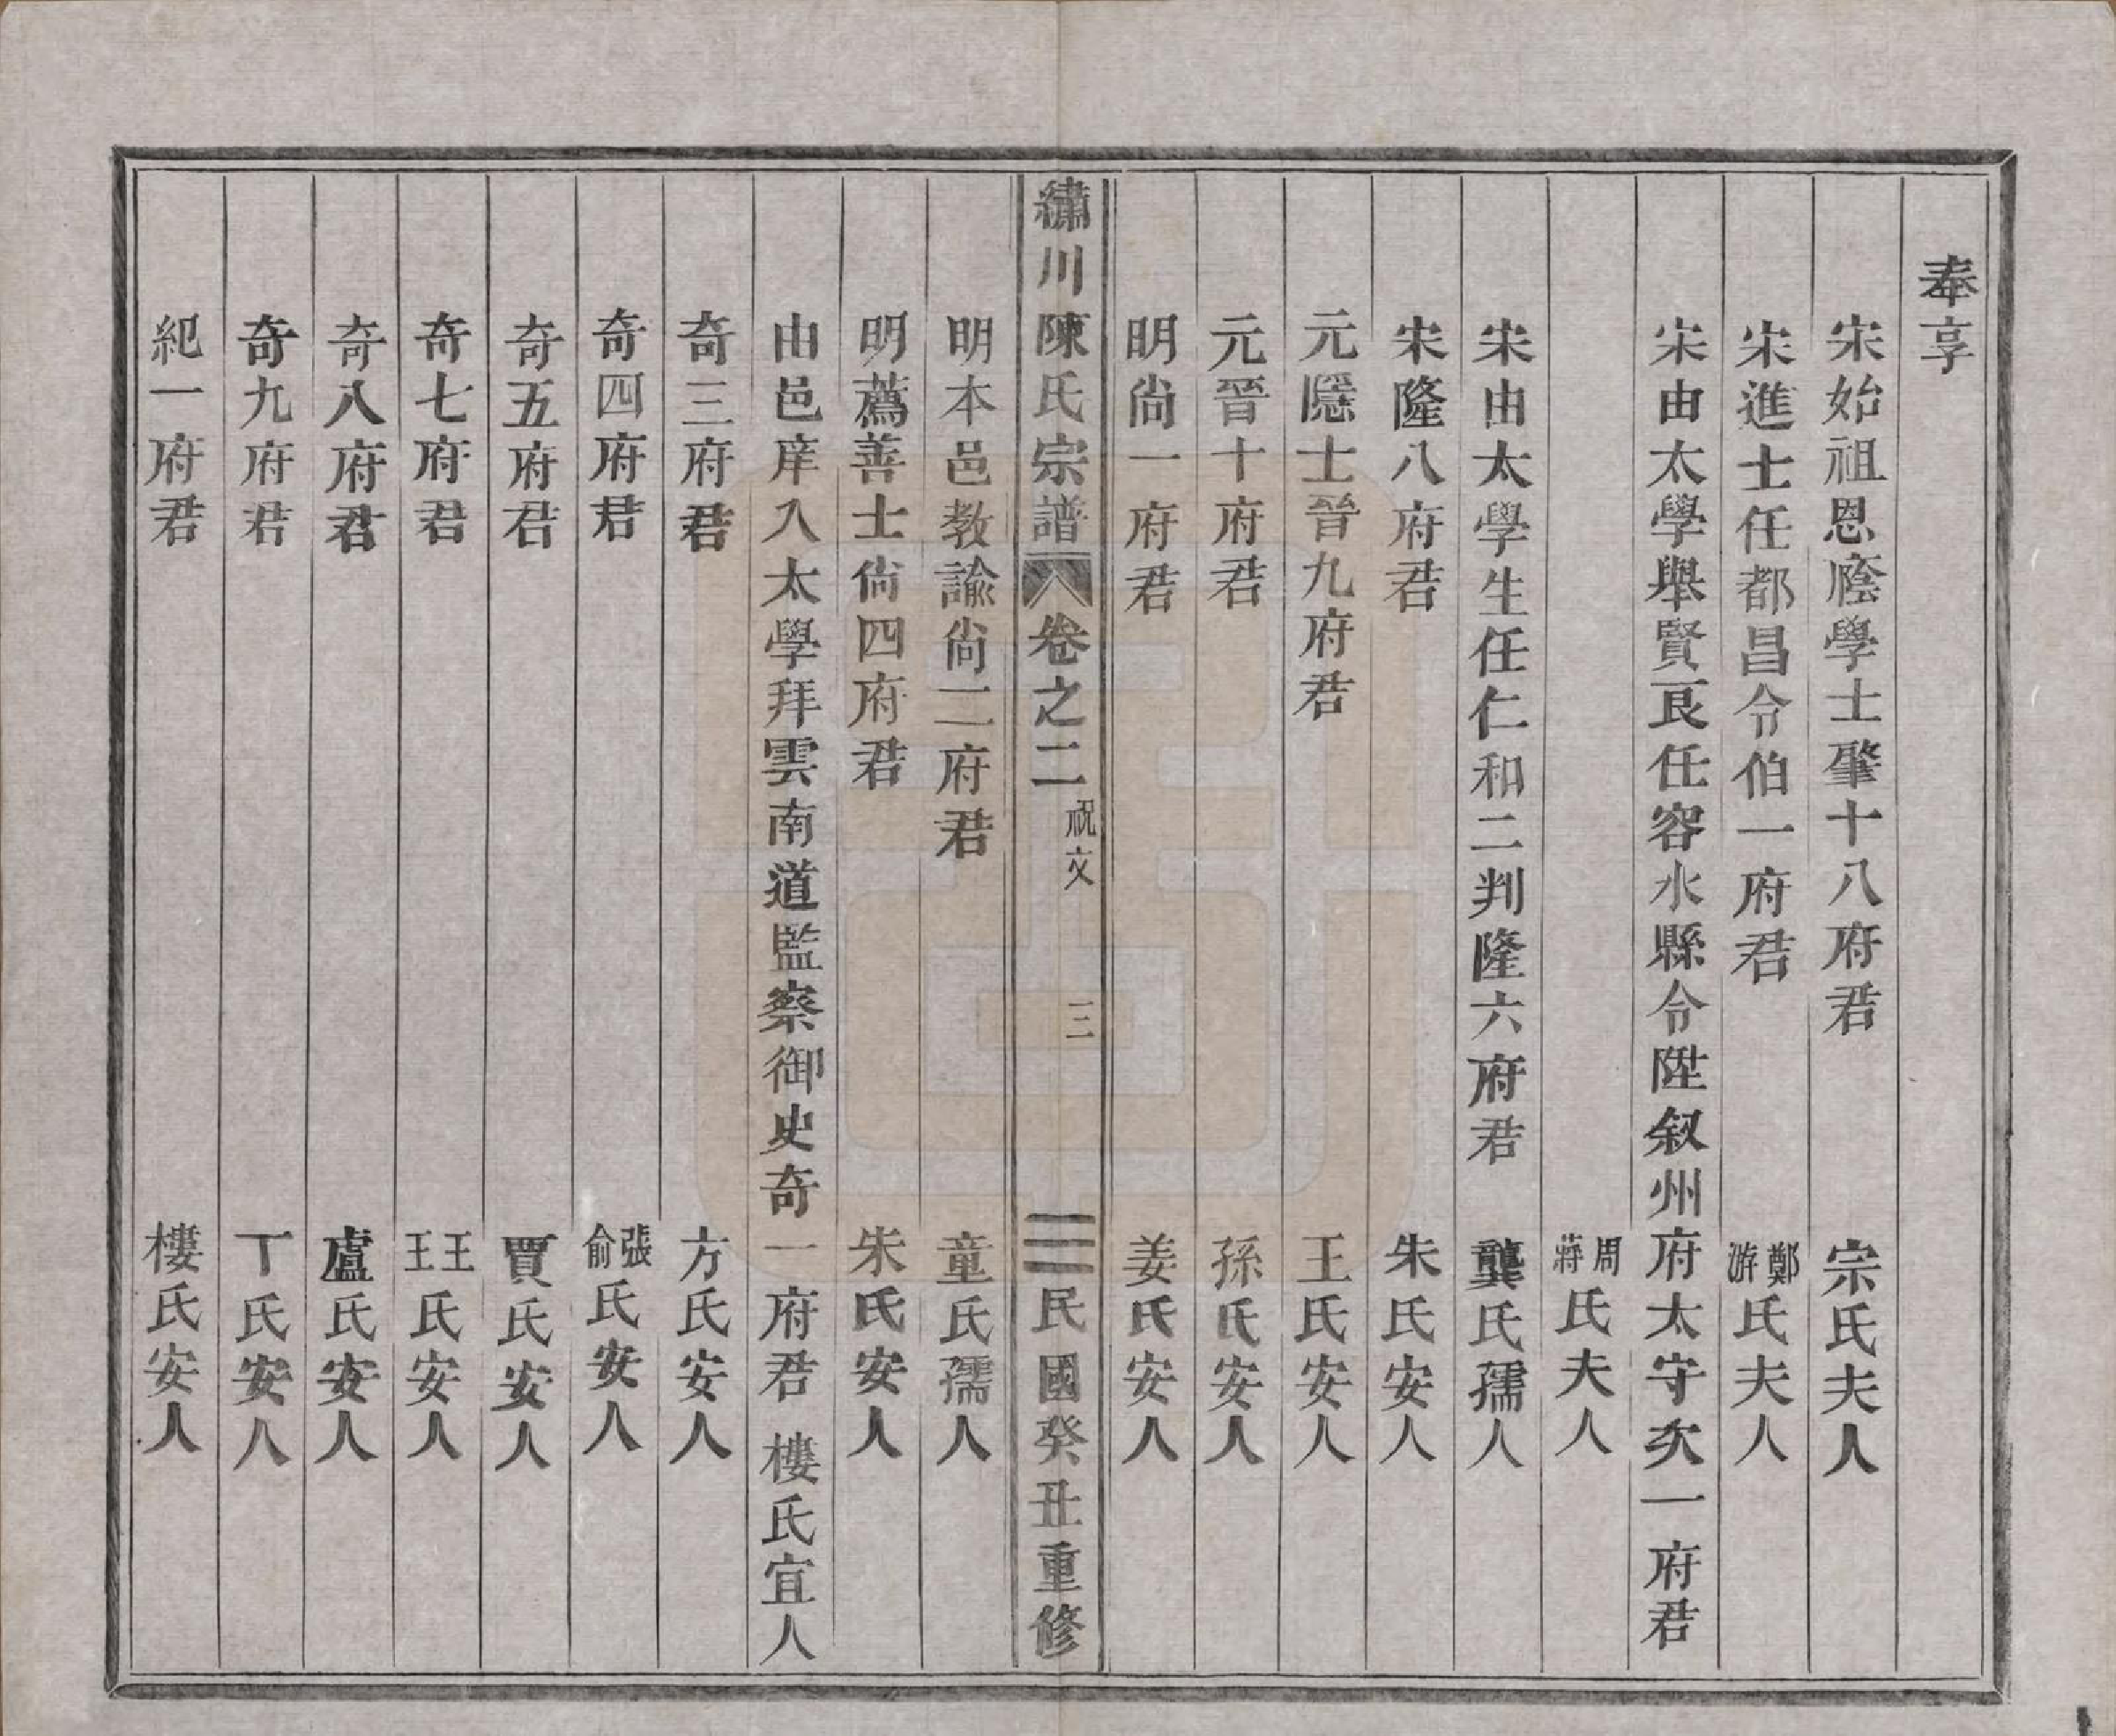 奉享
宋始祖恩廕學士肇十八府君　宗氏夫人
宋進士任都昌令伯一府君　鄭游氏夫人
宋由太學舉賢良任容水縣令陞叙州府太守次一府君
周蔣氏夫人
宋由太學生任仁和二判隆六府君　龔氏孺人
宋隆八府君　朱氏安人
元隱士晉九府君　王氏安人
元晉十府君　孫氏安人
明尚一府君　姜氏安人
繡川陳氏宗譜　卷之二　祝文　三　民國癸丑重修
明本邑教諭尚二府君　童氏孺人
明薦善士尚四府君　朱氏安人
由邑庠入太學拜雲南道監察御史奇一府君　樓氏宜人
奇三府君　方氏安人
奇四府君　張俞氏安人
奇五府君　賈氏安人
奇七府君　王王氏安人
奇八府君　盧氏安人
奇九府君　丁氏安人
紀一府君　樓氏安人